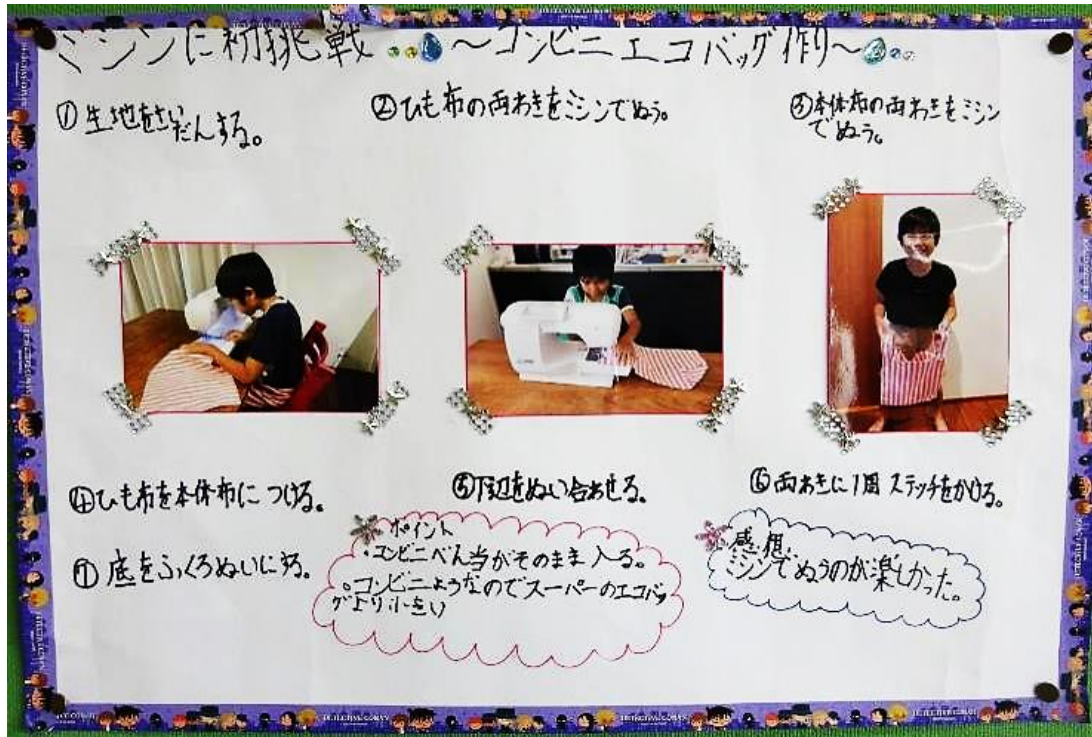 ミシンに初挑戦 〜コンビニエコバッグ作り〜
①生地をさい
だんする。
②ひも布の両わきをミシンでぬう。
③本体布の両わきをミシン
でぬう。
④ひも布を本体布につける。
⑤下辺をぬい合わせる。
⑥両わきに1周ステッチをかける。
⑦底をふくろぬいにする。
ポイント
・コンビニべん当がそのまま入る。
。コンビニようなのでスーパーのエコバッ
グより小さい
感想
ミシンでぬうのが楽しかった。
DETECTIVE CONAN